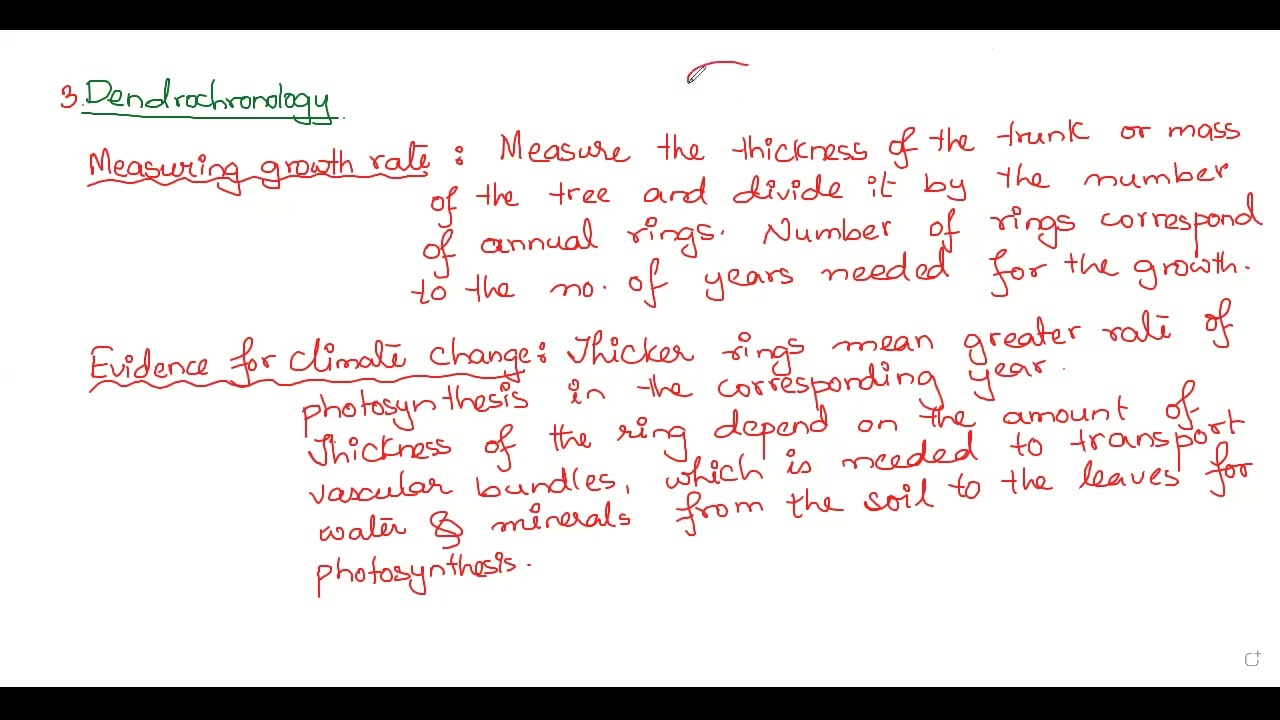 3. Dendrochronology
Measuring growth rate : Measure the thickness of the trunk or mass
of the tree and divide it by the number
of annual rings. Number of rings correspond
to the no. of years needed for the growth.
Evidence for climate change : Thicker rings mean greater rate of
photosynthesis in the corresponding year.
Thickness of the ring depend on the amount of
vascular bundles, which is needed to transport
water & minerals from the soil to the leaves for
photosynthesis.